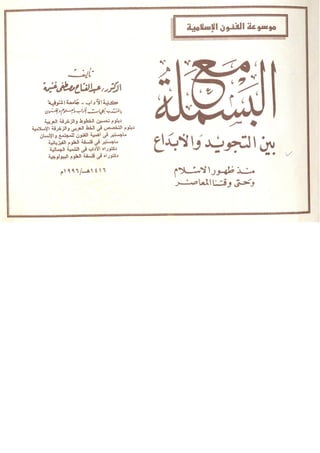 موسوعة الفنون الإسلامية
مع
البسملة
بين التجويد والأبداع
منذ ظهور الاسلام
وحتى وقتنا المعاصر
تأليف
الدكتور / عبد الفتاح مصطفى غنيمة
كلية الآداب - جامعة المنوفية
دبلوم تحسين الخطوط والزخرفة العربية
دبلوم التخصص فى الخط العربى والزخرفة الإسلامية
ماجستير فى أهمية الفنون للمجتمع والإنسان
ماجستير فى فلسفة العلوم الفيزيائية
دكتوراه الآداب فى التنمية الجمالية
دكتوراه فى فلسفة العلوم البيولوجية
١٤١٦هـ/١٩٩٦م